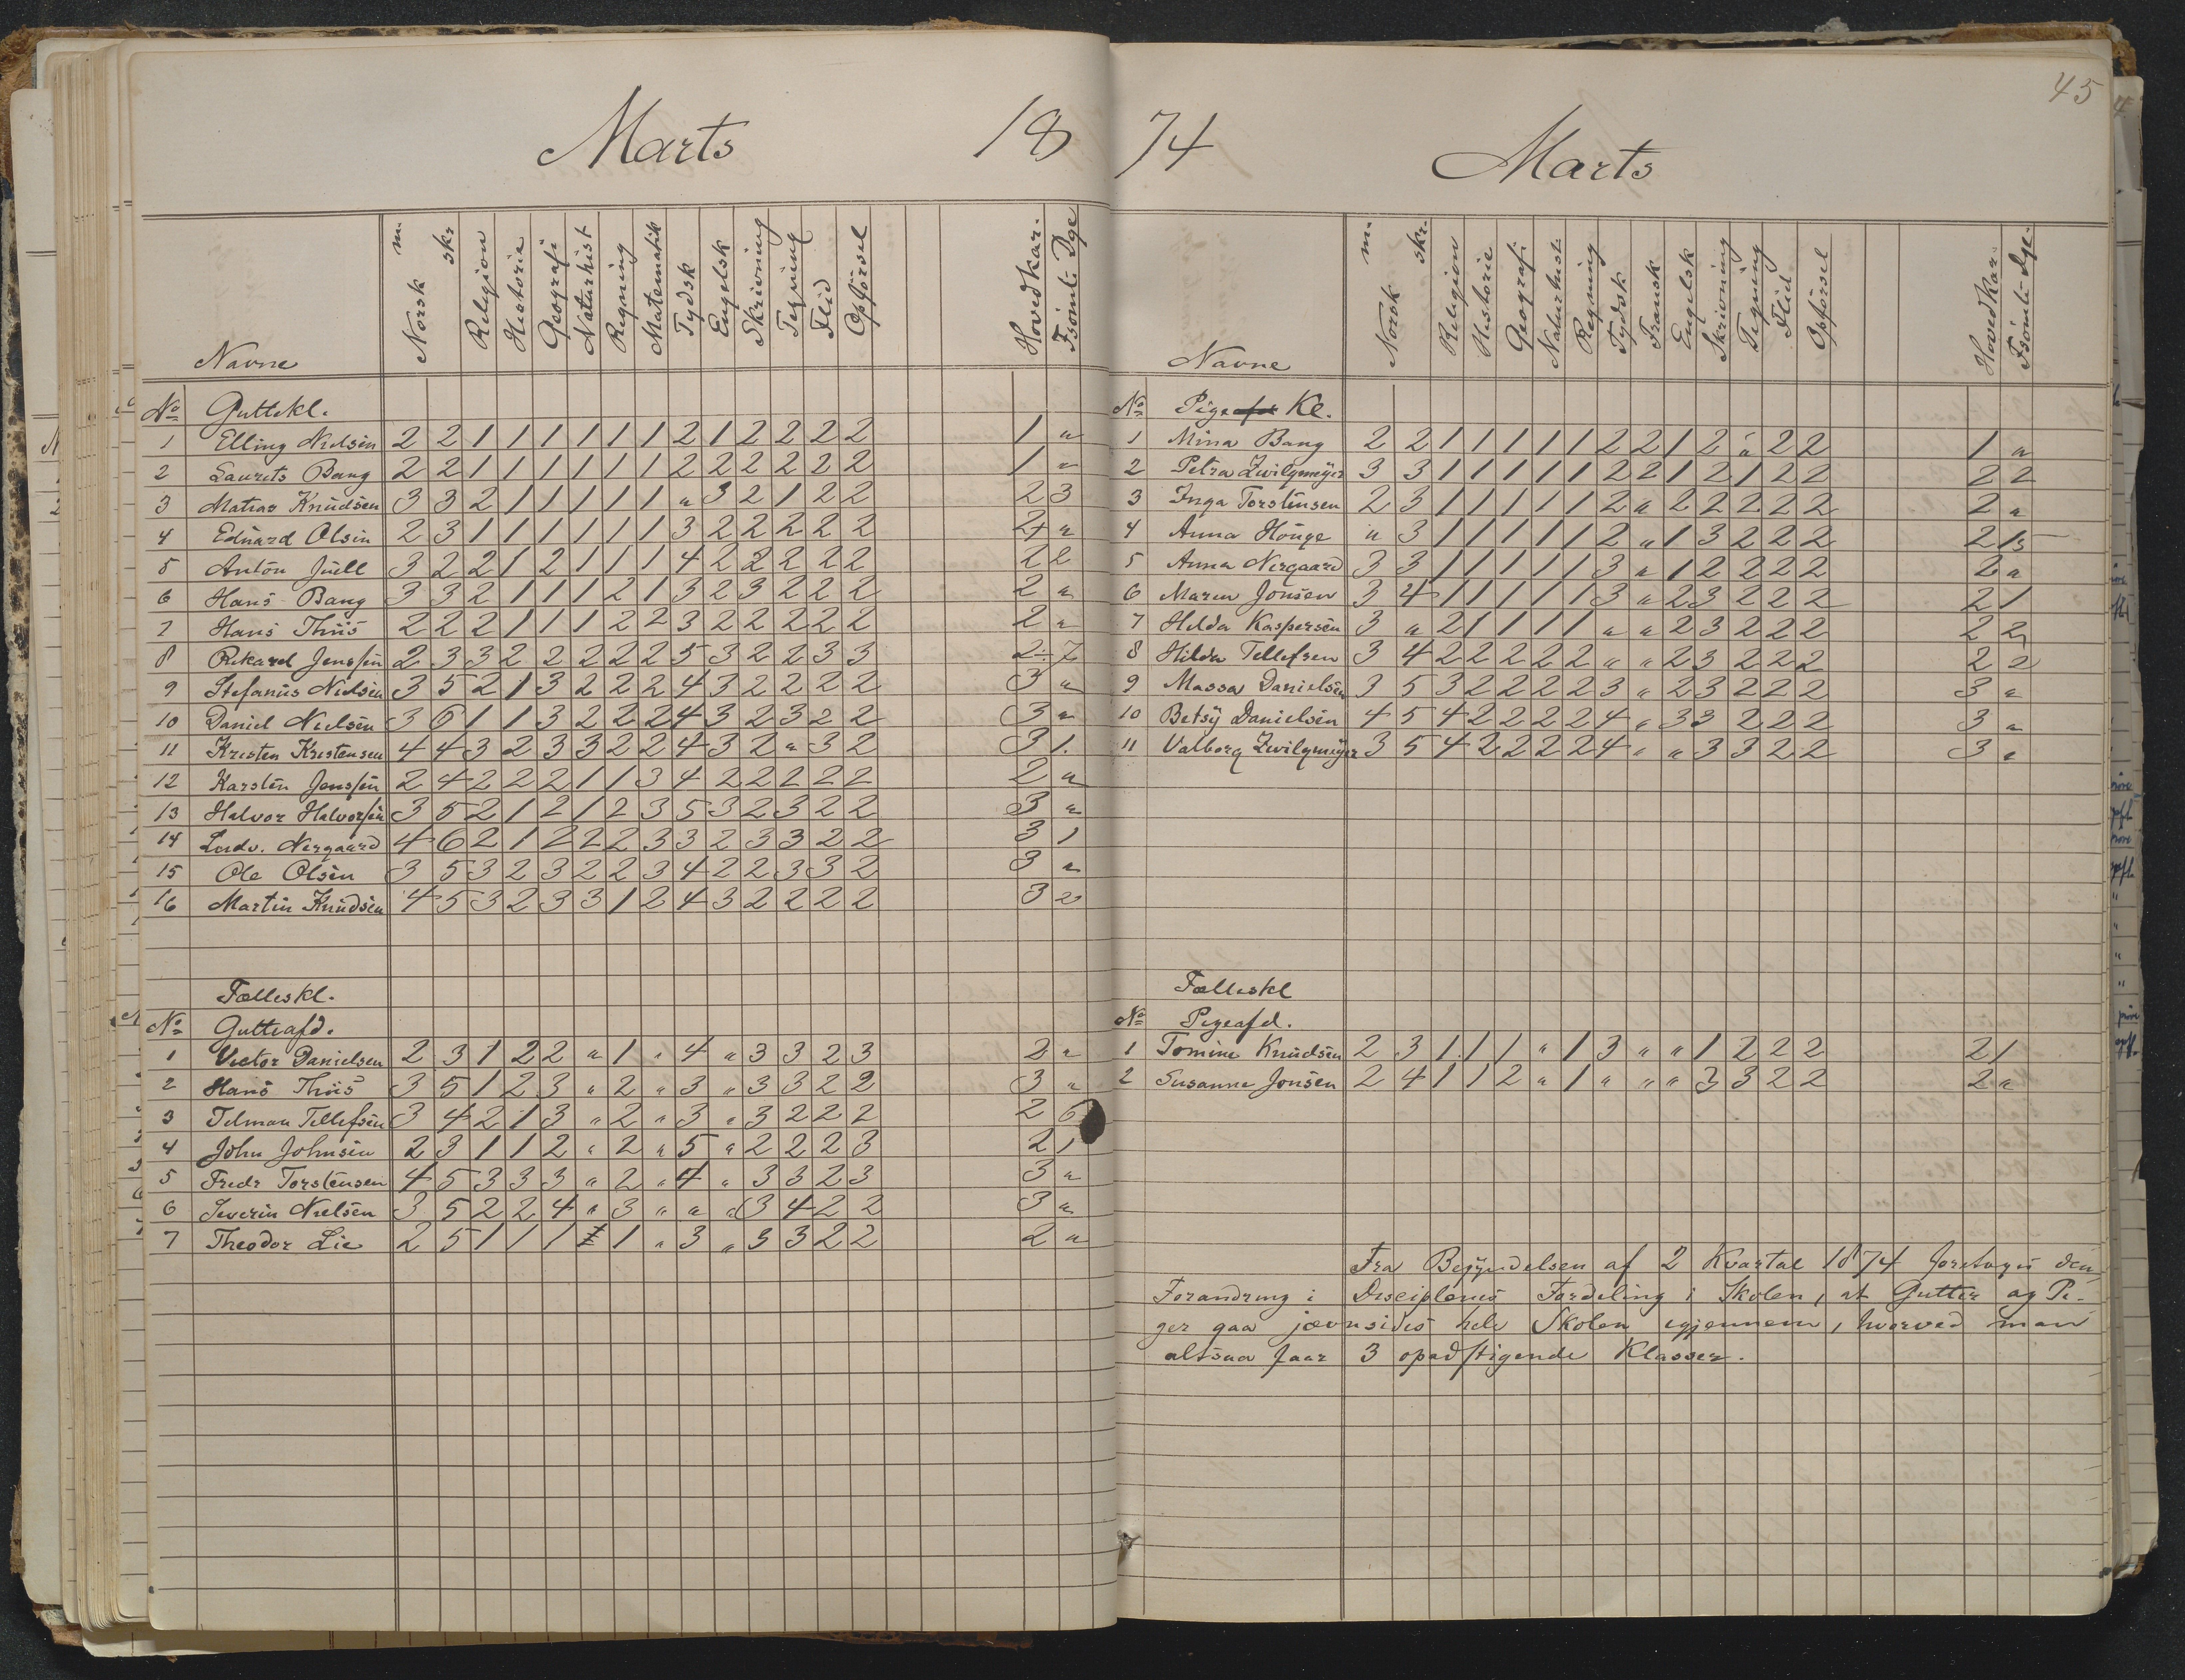 Marts 18
Navne Norsk m. skr. Religion Historie Geografi Naturhist Regning Matematik Tydsk Engelsk Skrivning Tegning Flid Opförsel Hovedkar. Fsömt. Dge
No Guttekl.
1 Elling Nielsen 2 2 1 1 1 1 1 1 2 1 2 2 2 2 1 "
2 Laurits Bang 2 2 1 1 1 1 1 1 2 2 2 2 2 2 1 "
3 Matias Knudsen 3 3 2 1 1 1 1 1 " 3 2 1 2 2 2 3
4 Eduard Olsen 2 3 1 1 1 1 1 1 3 2 2 2 2 2 2+ "
5 Anton Juell 3 2 2 1 2 1 1 1 4 2 2 2 2 2 2 2
6 Hans Bang 3 3 2 1 1 1 2 1 3 2 3 2 2 2 2 "
7 Hans Thiis 2 2 2 1 1 1 2 2 3 2 2 2 2 2 2 "
8 Rikard Jenssen 2 3 3 2 2 2 2 2 5 3 2 2 3 3 2÷ 7
9 Stefanus Nielsen 3 5 2 1 3 2 2 2 4 3 2 2 2 2 3 "
10 Daniel Nielsen 3 6 1 1 3 2 2 2 4 3 2 3 2 2 3 "
11 Kristen Kristensen 4 4 3 2 3 3 2 2 4 3 2 " 3 2 3 1.
12 Karsten Jenssen 2 4 2 2 2 1 1 3 4 2 2 2 2 2 2 "
13 Halvor Halvorsen 3 5 2 1 2 1 2 3 5 3 2 3 2 2 3 "
14 Ludv. Nergaard 4 6 2 1 2 2 2 3 3 2 3 3 2 2 3 1
15 Ole Olsen 3 5 3 2 3 2 2 3 4 2 2 3 3 2 3 "
16 Martin Knudsen 4 5 3 2 3 3 1 2 4 3 2 2 2 2 3 2
Fælleskl.
No Gutteafd.
1 Victor Danielsen 2 3 1 2 2 " 1 " 4 " 3 3 2 3 2 "
2 Hans Thiis 3 5 1 2 3 " 2 " 3 " 3 3 2 2 3 "
3 Telman Tellefsen 3 4 2 1 3 " 2 " 3 " 3 2 2 2 2 6
4 John Johnsen 2 3 1 1 2 " 2 " 5 " 2 2 2 3 2 1
5 Fredr Torstensen 4 5 3 3 3 " 2 " 4 " 3 3 2 3 3 "
6 Severin Nielsen 3 5 2 2 4 " 3 " " " 3 4 2 2 3 "
7 Theodor Lie 2 5 1 1 1 1 " 3 " 3 3 2 2 2 "
45
74 Marts
Navne Norsk m. skr. Religion Historie Geografi Naturhist. Regning Tydsk Fransk Engelsk Skrivning Tegning Flid Opförsel Hovedkar. Fsömt. Dge.
No Pigeafd Kl.
1 Mina Bang 2 2 1 1 1 1 1 2 2 1 2 " 2 2 1 "
2 Petra Zwilgmeyer 3 3 1 1 1 1 1 2 2 1 2 1 2 2 2 2
3 Inga Torstensen 2 3 1 1 1 1 1 2 " 2 2 2 2 2 2 "
4 Anna Houge " 3 1 1 1 1 1 2 " 1 3 2 2 2 2 15
5 Anna Nergaard 3 3 1 1 1 1 1 3 " 1 2 2 2 2 2 "
6 Maren Jonsen 3 4 1 1 1 1 1 3 " 2 3 2 2 2 2 1
7 Hilda Kaspersen 3 " 2 1 1 1 1 " " 2 3 2 2 2 2 2
8 Hilda Tellefsen 3 4 2 2 2 2 2 " " 2 3 2 2 2 2 2
9 Massa Danielsen 3 5 3 2 2 2 2 3 " 2 3 2 2 2 3 "
10 Betsy Danielsen 4 5 4 2 2 2 2 4 " 3 3 2 2 2 3 "
11 Valborg Zwilgmeyer 3 5 4 2 2 2 2 4 " " 3 3 2 2 3 "
Fælleskl
No Pigeafd.
1 Tomine Knudsen 2 3 1 1 1 " 1 3 " " 1 2 2 2 2 1
2 Susanne Jonsen 2 4 1 1 2 " 1 " " " 3 3 2 2 2 "
Fra Begyndelsen af 2 Kvartal 1874 foretages den
Forandring i Disciplenes Fordeling i Skolen, at Gutter og Pi-
ger gaa jævnsides hele Skolen igjennem, hvorved man
altsaa faar 3 opadstigende Klasser.